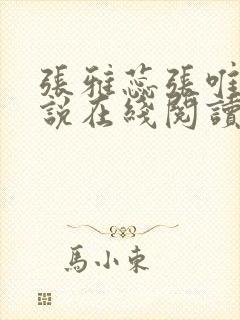 張雅蕊張唯
說在綫閱讀
馬小東